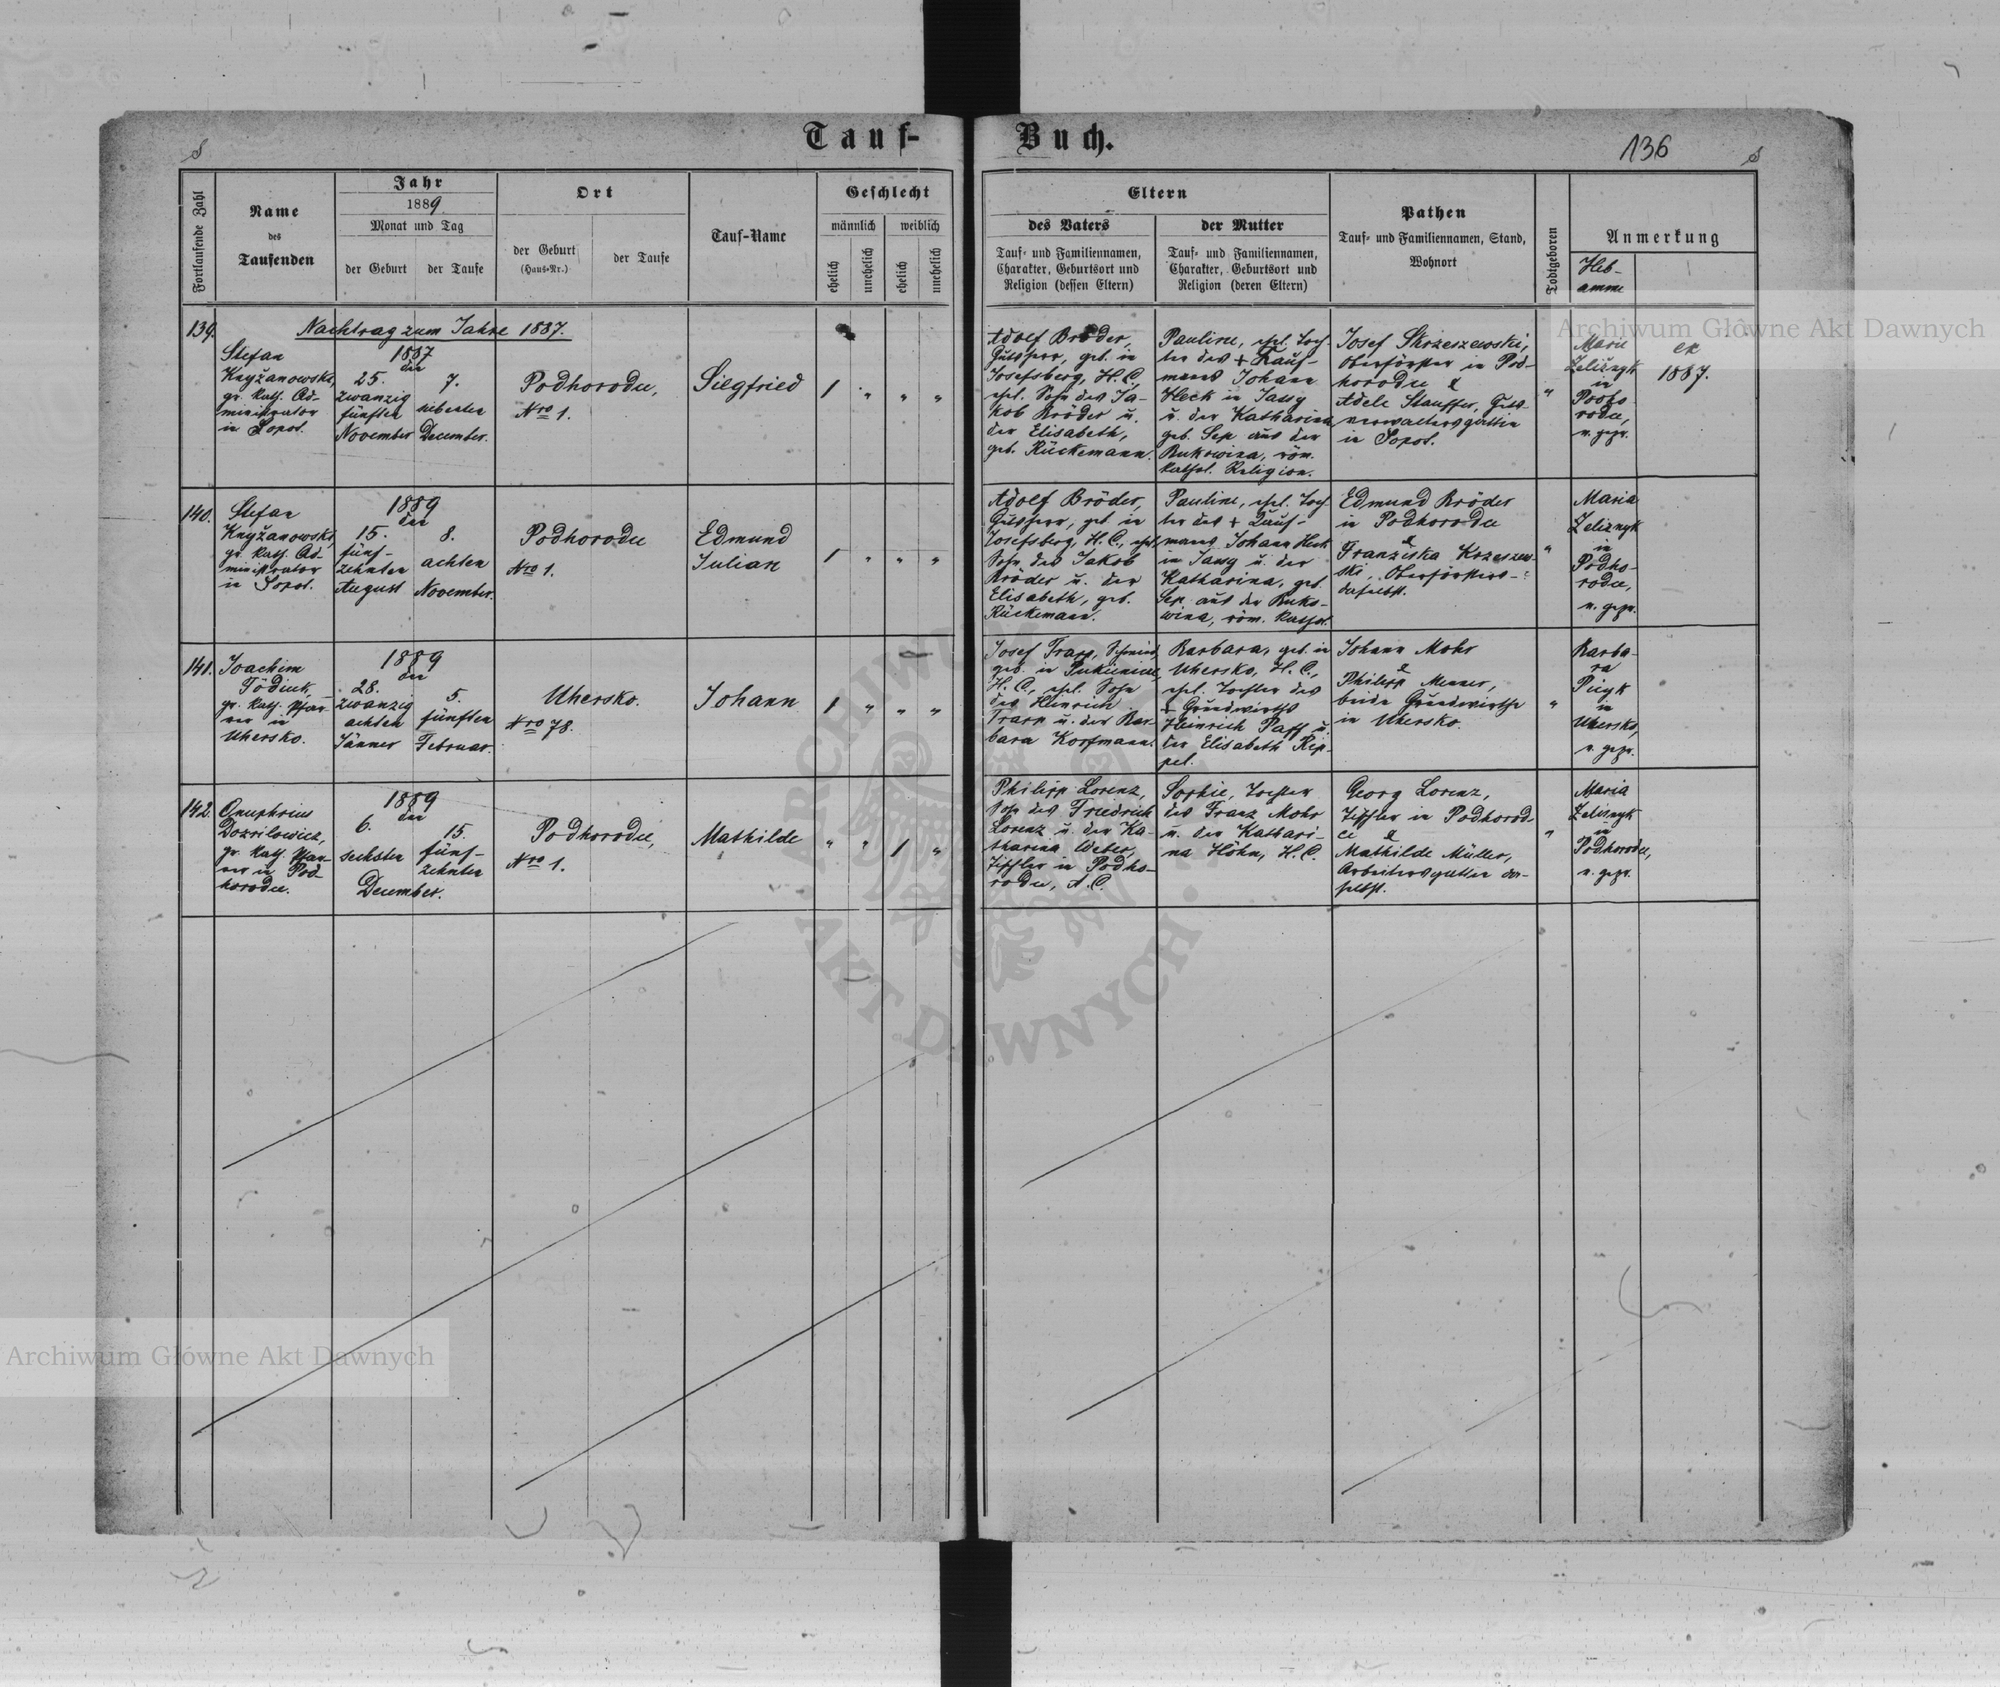 Tauf-
Buch.
136
Fortlaufende Zahl
Name
des
Taufenden
Jahr
1889.
Monat und Tag
der Geburt
der Taufe
Ort
der Geburt
(Haus-Nr.)
der Taufe
Tauf-Name
Geschlecht
männlich
weiblich
ehelich
unehelich
ehelich
unehelich
Eltern
des Vaters
Tauf- und Familiennamen,
Charakter, Geburtsort und
Religion (dessen Eltern)
der Mutter
Tauf- und Familiennamen,
Charakter, Geburtsort und
Religion (deren Eltern)
Pathen
Tauf- und Familiennamen, Stand,
Wohnort
Todtgeboren
Anmerkung
Heb-
amme
139.
Nachtrag zum Jahre 1887.
Stefan
Knyžanowski,
gr. kath. Ad-
ministrator
in Sopot.
1887
den
25.
zwanzig
fünften
November
7.
siebenten
December.
Podhorodce,
Nro 1.
Siegfried
1 " " "
Adolf Bröder,
geb. in
Josefsberg, H.C.,
ehel. Sohn des Ja-
kob Bröder u.
der Elisabeth,
geb. Rückemann.
Pauline, ehel. Toch-
ter des + Kauf-
manns Johann
Heck in Jassy
u. der Katharina
geb. Sep aus der
Bukowina, röm.
kathol. Religion.
Josef Skrzeszewski,
Oberförster in Pod-
horodce &
Adele Stauffer, Guts-
verwaltersgattin
in Sopot.
"
Marie
Zeliznyk
in
Podho
rodce,
u. gepr.
ex
1887.
140.
Stefan
Knyžanowski,
gr. kath. Ad-
ministrator
in Sopot.
1889
den
15.
fünf-
zehnten
August
8.
achten
November.
Podhorodce
Nro 1.
Edmund
Julian
1 " " "
Adolf Bröder,
geb. in
Josefsberg, H.C., ehel.
Sohn des Jakob
Bröder u. der
Elisabeth, geb.
Rückemann.
Pauline, ehel. Toch-
ter des + Kauf-
manns Johann Heck
in Jassy u. der
Katharina, geb.
Sep aus der Buko-
wina, röm. kathol.
Edmund Bröder
in Podhorodce
&
Franziska Krzeszew-
ski, Oberförsters-
daselbst.
"
Maria
Zeliznyk
in
Podho-
rodce,
u. gepr.
141.
Joachim
gr. kath. Pfar-
rer in
Uhersko.
1889
den
28.
zwanzig
achten
Jänner
5.
fünften
Februar
Uhersko.
Nro 78.
Johann
1 " " "
Josef Trapp, Schmied,
geb. in
H.C., ehel. Sohn
des Heinrich
Trapp u. der Bar-
bara Korfmann.
Barbara, geb. in
Uhersko, H.C.,
ehel. Tochter des
+ Grundwirths
Heinrich Paff u.
der Elisabeth Rip-
pel.
Johann Mohr
&
Philipp Menner,
beide Grundwirthe
in Uhersko.
"
Barba-
ra
in
Uhersko,
u. gepr.
142.
Onuphrius
gr. kath. Pfar-
rer in Pod-
horodce.
1889
den
6.
sechsten
15.
fünf-
zehnten
December.
Podhorodce,
Nro 1.
Mathilde
" " 1 "
Philipp Lorenz,
Sohn des Friedrich
Lorenz u. der Ka-
tharina Weber,
Tischler in Podho-
rodce, A.C.
Sophie, Tochter
des Franz Mohr
u. der Kathari-
na Höhn, H.C.
Georg Lorenz,
Tischler in Podhorod-
ce &
Mathilde Müller,
Arbeitersgattin da-
selbst.
"
Maria
Zeliznyk
in
Podhorodce,
u. gepr.
Archiwum Główne Akt Dawnych
Archiwum Główne Akt Dawnych
ARCHIWUM
AKT DAWNYCH